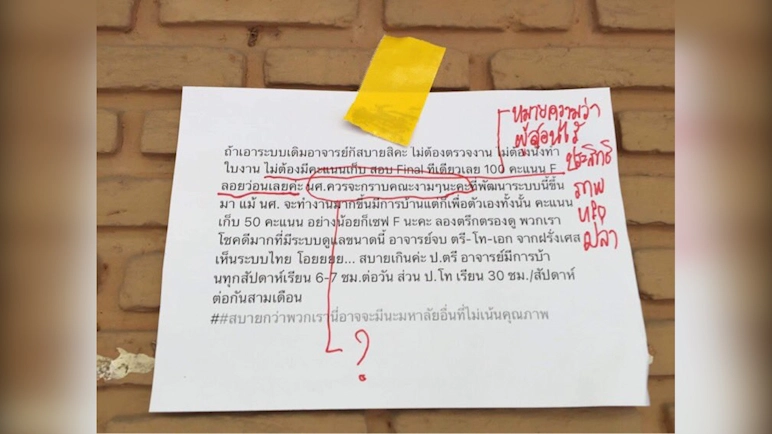 ถ้าเอาระบบเดิมอาจารย์ก็สบายสิคะ ไม่ต้องตรวจงาน ไม่ต้องนั่งทำ
ใบงาน ไม่ต้องมีคะแนนเก็บ สอบ Final ทีเดียวเลย 100 คะแนน F
ลอยว่อนเลยค่ะ นศ.ควรจะกราบคณะงามๆนะคะที่พัฒนาระบบนี้ขึ้น
มา แม้ นศ. จะทำงานมากขึ้นมีการบ้านแต่ก็เพื่อตัวเองทั้งนั้น คะแนน
เก็บ 50 คะแนน อย่างน้อยก็เซฟ F นะคะ ลองตรึกตรองดู พวกเรา
โชคดีมากที่มีระบบดูแลขนาดนี้ อาจารย์จบ ตรี-โท-เอก จากฝรั่งเศส
เห็นระบบไทย โอยยยย... สบายเกินค่ะ ป.ตรี อาจารย์มีการบ้า
นทุกสัปดาห์เรียน 6-7 ชม.ต่อวัน ส่วน ป.โท เรียน 30 ชม./สัปดาห์
ต่อกันสามเดือน
##สบายกว่าพวกเรานี่อาจจะมีนะมหาลัยอื่นที่ไม่เน้นคุณภาพ
หมายความว่า
ผู้สอนไร้
ประสิทธิ
ภาพ
หรือ
ปล่า
?